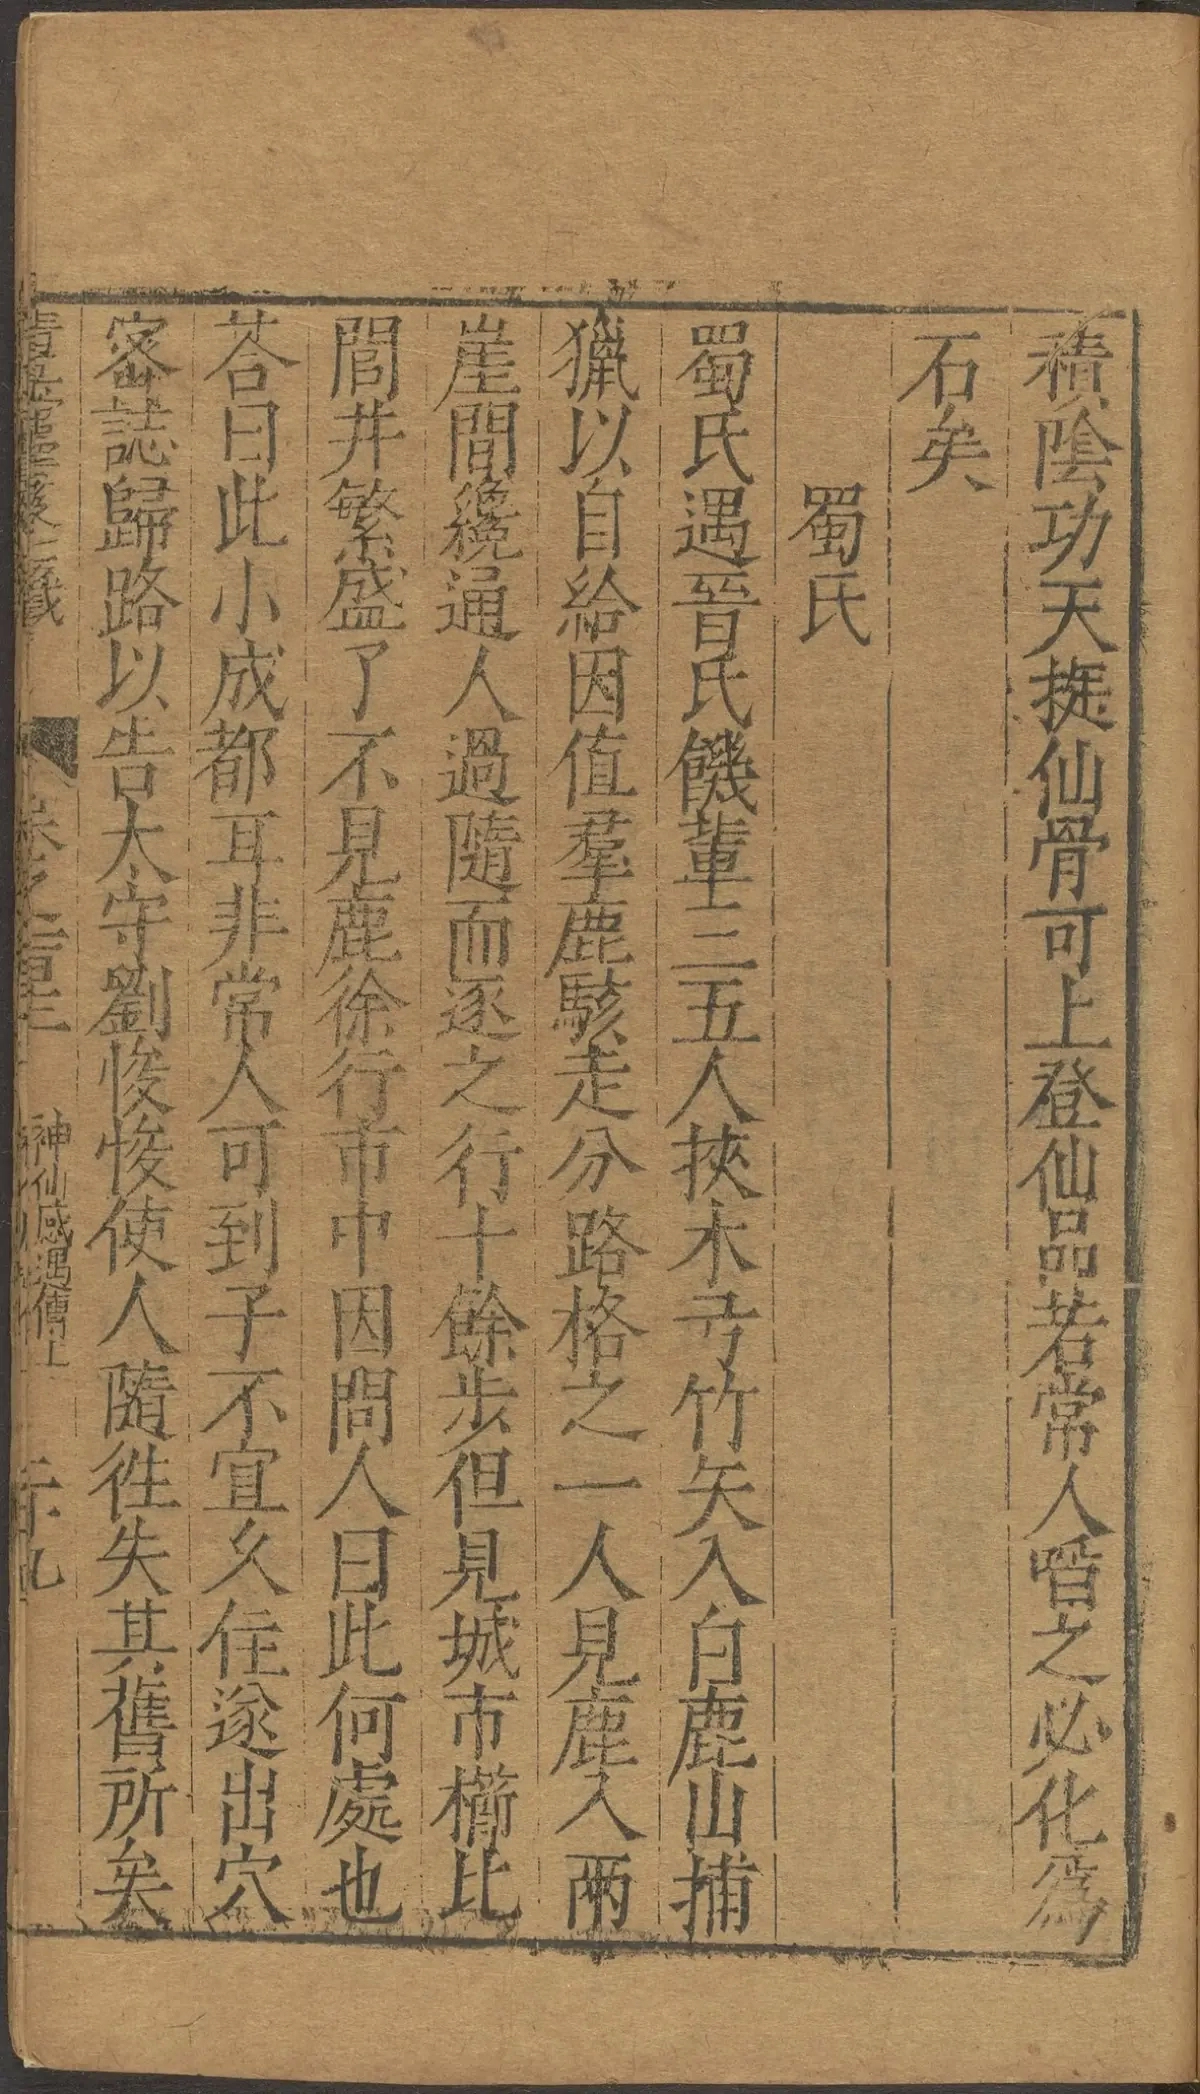 積陰功天挺仙骨可上登仙品若常人㗖之必化爲
石矣
蜀氏
蜀氏遇晉氏饑輩三五人挾木弓竹矢入白鹿山捕
獵以自給因值羣鹿駭走分路格之一人見鹿入兩
崖間纔通人過隨而逐之行十餘步但見城市櫛比
閭井繁盛了不見鹿徐行市中因問人曰此何處也
荅曰此小成都耳非常人可到子不宜久住遂出穴
密誌歸路以告太守劉悛悛使人隨徃失其舊所矣
神仙感遇傳上